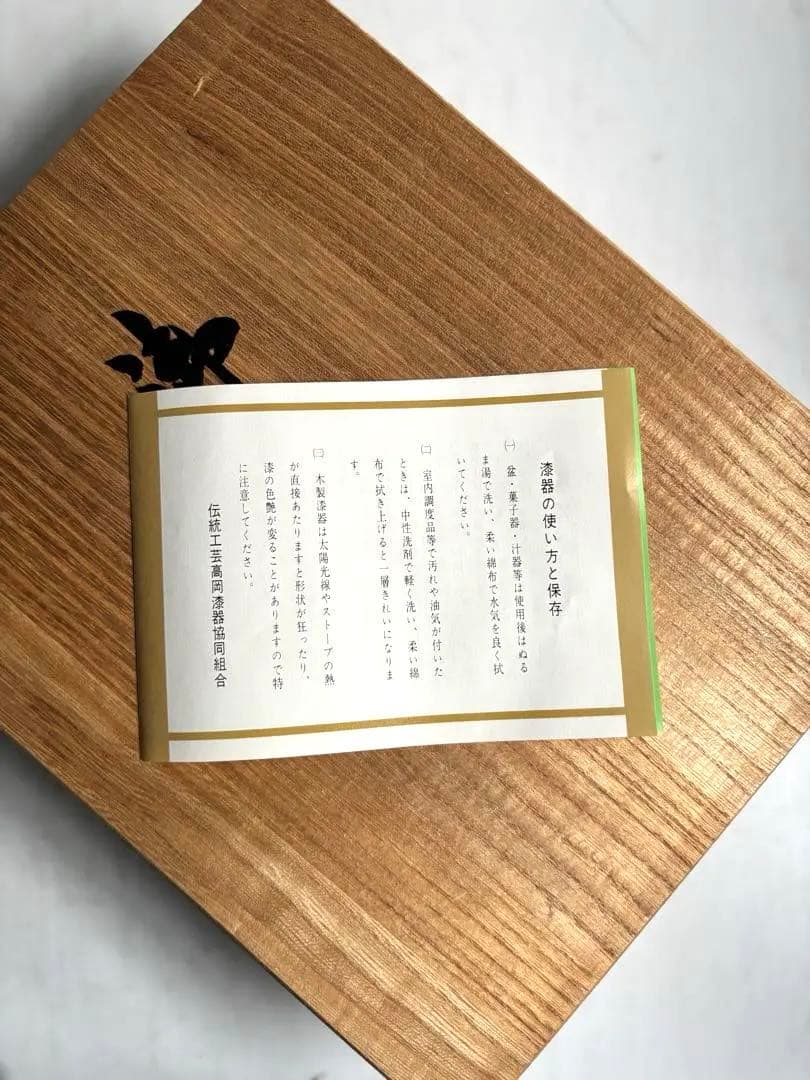 漆器の使い方と保存
㈠ 盆・菓子器・汁器等は使用後はぬる
ま湯で洗い、柔い綿布で水気を良く拭
いてください。
㈡ 室内調度品等で汚れや油気が付いた
ときは、中性洗剤で軽く洗い、柔い綿
布で拭き上げると一層きれいになりま
す。
㈢ 木製漆器は太陽光線やストーブの熱
が直接あたりますと形状が狂ったり、
漆の色艶が変ることがありますので特
に注意してください。
伝統工芸高岡漆器協同組合